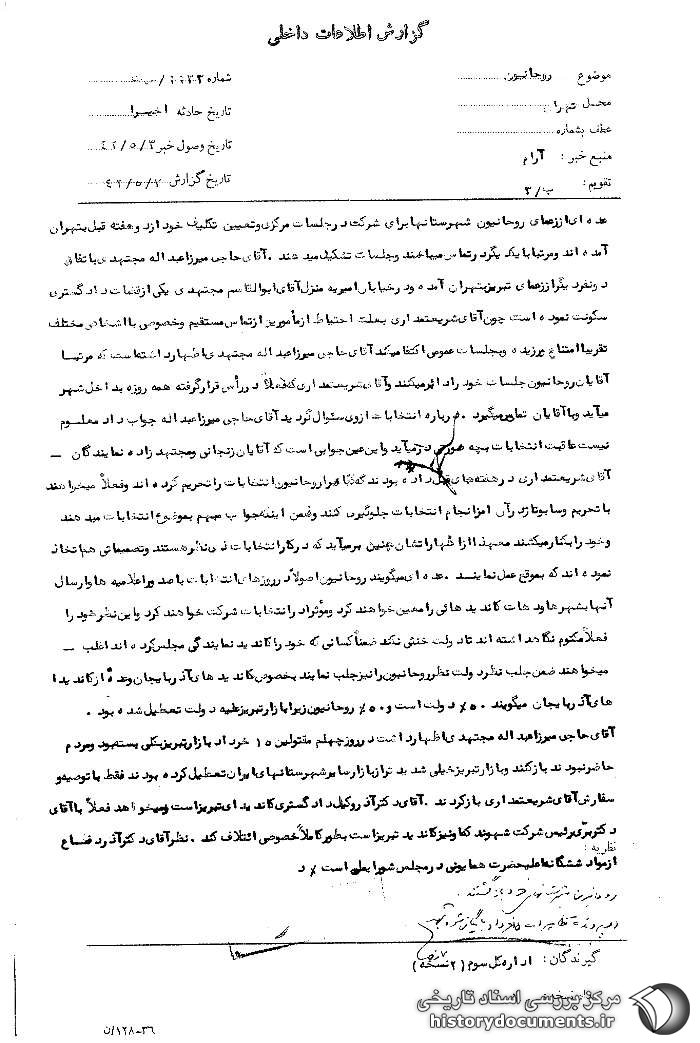 گزارش اطلاعات داخلی
موضوع روحانیون
شماره
محل تهران
تاریخ حادثه اخیرا
عطف بشماره
تاریخ وصول خبر ۴۲/۵/۳
منبع خبر: آرام
تاریخ گزارش ۴۲/۵/۷
تقویم: ب/۳
عده ای از زعمای روحانیون شهرستانها برای شرکت در جلسات مرکزی و تعیین تکلیف خود از دو هفته قبل بتهران
آمده اند و مرتبا با یکدیگر تماس میباخند و جلسات تشکیل میدهند. آقای حاجی میرزا عبداله مجتهدی باتفاق
دو نفر دیگر از زعمای تبریز بتهران آمده و در خیابان امیریه منزل آقای ابوالقاسم مجتهدی یکی از قضات دادگستری
سکونت نموده است چون آقای شریعتمداری بعلت احتیاط از مأمورین از تماس مستقیم و خصوصی با اشخاص مختلف
تقریبا امتناع ورزیده و بجلسات عمومی اکتفا میکند آقای حاجی میرزا عبداله مجتهدی اظهار داشته است که مرتبا
آقایان روحانیون جلسات خود را دائر میکنند و آقای شریعتمداری که فعلاً در رأس قرار گرفته همه روزه بداخل شهر
میآید و با آقایان تماس میگیرد. درباره انتخابات از وی سئوال گردید آقای حاجی میرزا عبداله جواب داد معلوم
نیست عاقبت انتخابات بچه صورتی درمیآید و این عین جوابی است که آقایان زنجانی و مجتهدزاده نمایندگان ــ
آقای شریعتمداری در هفته های قبل داده بودند که قبلا قرار روحانیون انتخابات را تحریم کرده اند و فعلاً میخواهند
با تحریم و سابوتاژ در آن از انجام انتخابات جلوگیری کنند و ضمن اینکه جواب مبهم بموضوع انتخابات میدهند
و خود را بکنار میکشند معهذا از اظهاراتشان چنین برمیآید که در کار انتخابات ذی نظر هستند و تصمیماتی هم اتخاذ
نموده اند که بموقع عمل نمایند. عده ای میگویند روحانیون اصولاً در روزهای انتخابات با صدور اعلامیه ها و ارسال
آنها بشهرها و دهات کاندیدهائی را معین خواهند کرد و مؤثراً در انتخابات شرکت خواهند کرد و این نظر خود را
فعلاً مکتوم نگاهداشته اند تا دولت خنثی نکند ضمناً کسانی که خود را کاندید نمایندگی مجلس کرده اند اغلب ــ
میخواهند ضمن جلب نظر دولت نظر روحانیون را نیز جلب نمایند بخصوص کاندیدهای آذربایجان و عده ای از کاندیدا
های آذربایجان میگویند ۵۰٪ دولت است و ۵۰٪ روحانیون زیرا بازار تبریز علیه دولت تعطیل شده بود.
آقای حاجی میرزا عبداله مجتهدی اظهار داشت در روز چهلم مقتولین ۱۵ خرداد بازار تبریز بکلی بسته بود و مردم
حاضر نبودند باز کنند و بازار تبریز خیلی شدیدتر از بازار سایر شهرستانهای ایران تعطیل کرده بودند فقط با توصیه و
سفارش آقای شریعتمداری باز کردند. آقای دکتر آذر وکیل دادگستری کاندیدای تبریز است و میخواهد فعلاً با آقای
دکتر برّی رئیس شرکت شهوند که او نیز کاندید تبریز است بطور کاملاً خصوصی ائتلاف کند. نظر آقای دکتر آذر دفاع
نظریه:
از مواد ششگانه اعلیحضرت همایونی در مجلس شورایملی است ٪ د
روحانیون شهرستانهای خود بازگشتند.
گیرندگان: اداره کل سوم (۲ نسخه)
ن/۱۲۸-۳۶
مرکز بررسی اسناد تاریخی
historydocuments.ir